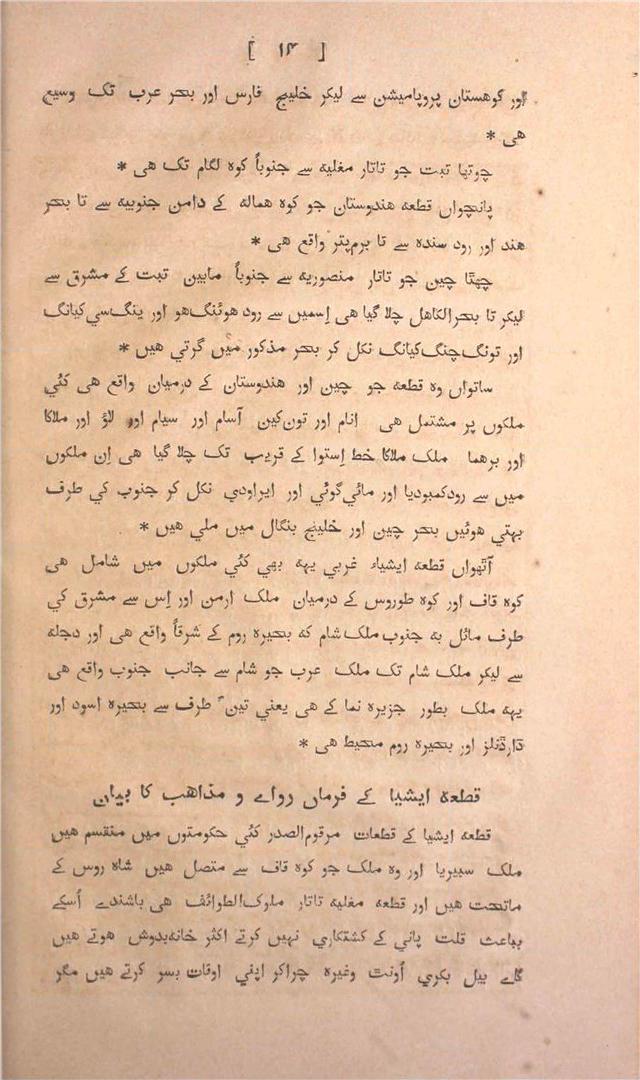 [ ۱۴ ]
اور کوهستان پروپامیشن سے لیکر خلیج فارس اور بحر عرب تک وسیع
هی *
چوتها تبت جو تاتار مغلیه سے جنوباً کوه لگام تک هی *
پانچواں قطعه هندوستان جو کوه هماله کے دامن جنوبیه سے تا بحر
هند اور رود سنده سے تا برم‌پتر واقع هی *
چهٹا چین جو تاتار منصوریه سے جنوباً مابین تبت کے مشرق سے
لیکر تا بحرالکاهل چلا گیا هی اِسمیں سے رود هوئنگ‌هو اور ینگ‌سی‌کیانگ
اور تونگ‌چنگ‌کیانگ نکل کر بحر مذکور میں گرتي هیں *
ساتواں وه قطعه جو چین اور هندوستان کے درمیان واقع هی کئي
ملکوں پر مشتمل هی انام اور تون‌کین آسام اور سیام اور لاؤ اور ملاکا
اور برهما ملک ملاکا خط اِستوا کے قریب تک چلا گیا هی اِن ملکوں
میں سے رودکمبودیا اور مائي‌گوئي اور ایراودي نکل کر جنوب کي طرف
بهتي هوئیں بحر چین اور خلیج بنگال میں ملي هیں *
آٹهواں قطعه ایشیاء غربي یهه بهي کئي ملکوں میں شامل هی
کوه قاف اور کوه طوروس کے درمیان ملک ارمن اور اِس سے مشرق کي
طرف مائل به جنوب ملک شام که بحیره روم کے شرقاً واقع هی اور دجله
سے لیکر ملک شام تک ملک عرب جو شام سے جانب جنوب واقع هی
یهه ملک بطور جزیره نما کے هی یعني تین طرف سے بحیره اسود اور
ڈارڈنلز اور بحیره روم محیط هی *
قطعه ایشیا کے فرماں رواے و مذاهب کا بیان
قطعه ایشیا کے قطعات مرقوم‌الصدر کئي حکومتوں میں منقسم هیں
ملک سیبریا اور وه ملک جو کوه قاف سے متصل هیں شاه روس کے
ماتحت هیں اور قطعه مغلیه تاتار ملوک‌الطوائف هی باشندے اُسکے
بباعث قلت پاني کے کشتکاري نهیں کرتے اکثر خانه‌بدوش هوتے هیں
گاے بیل بکري اُونٹ وغیره چراکر اپني اوقات بسر کرتے هیں مگر